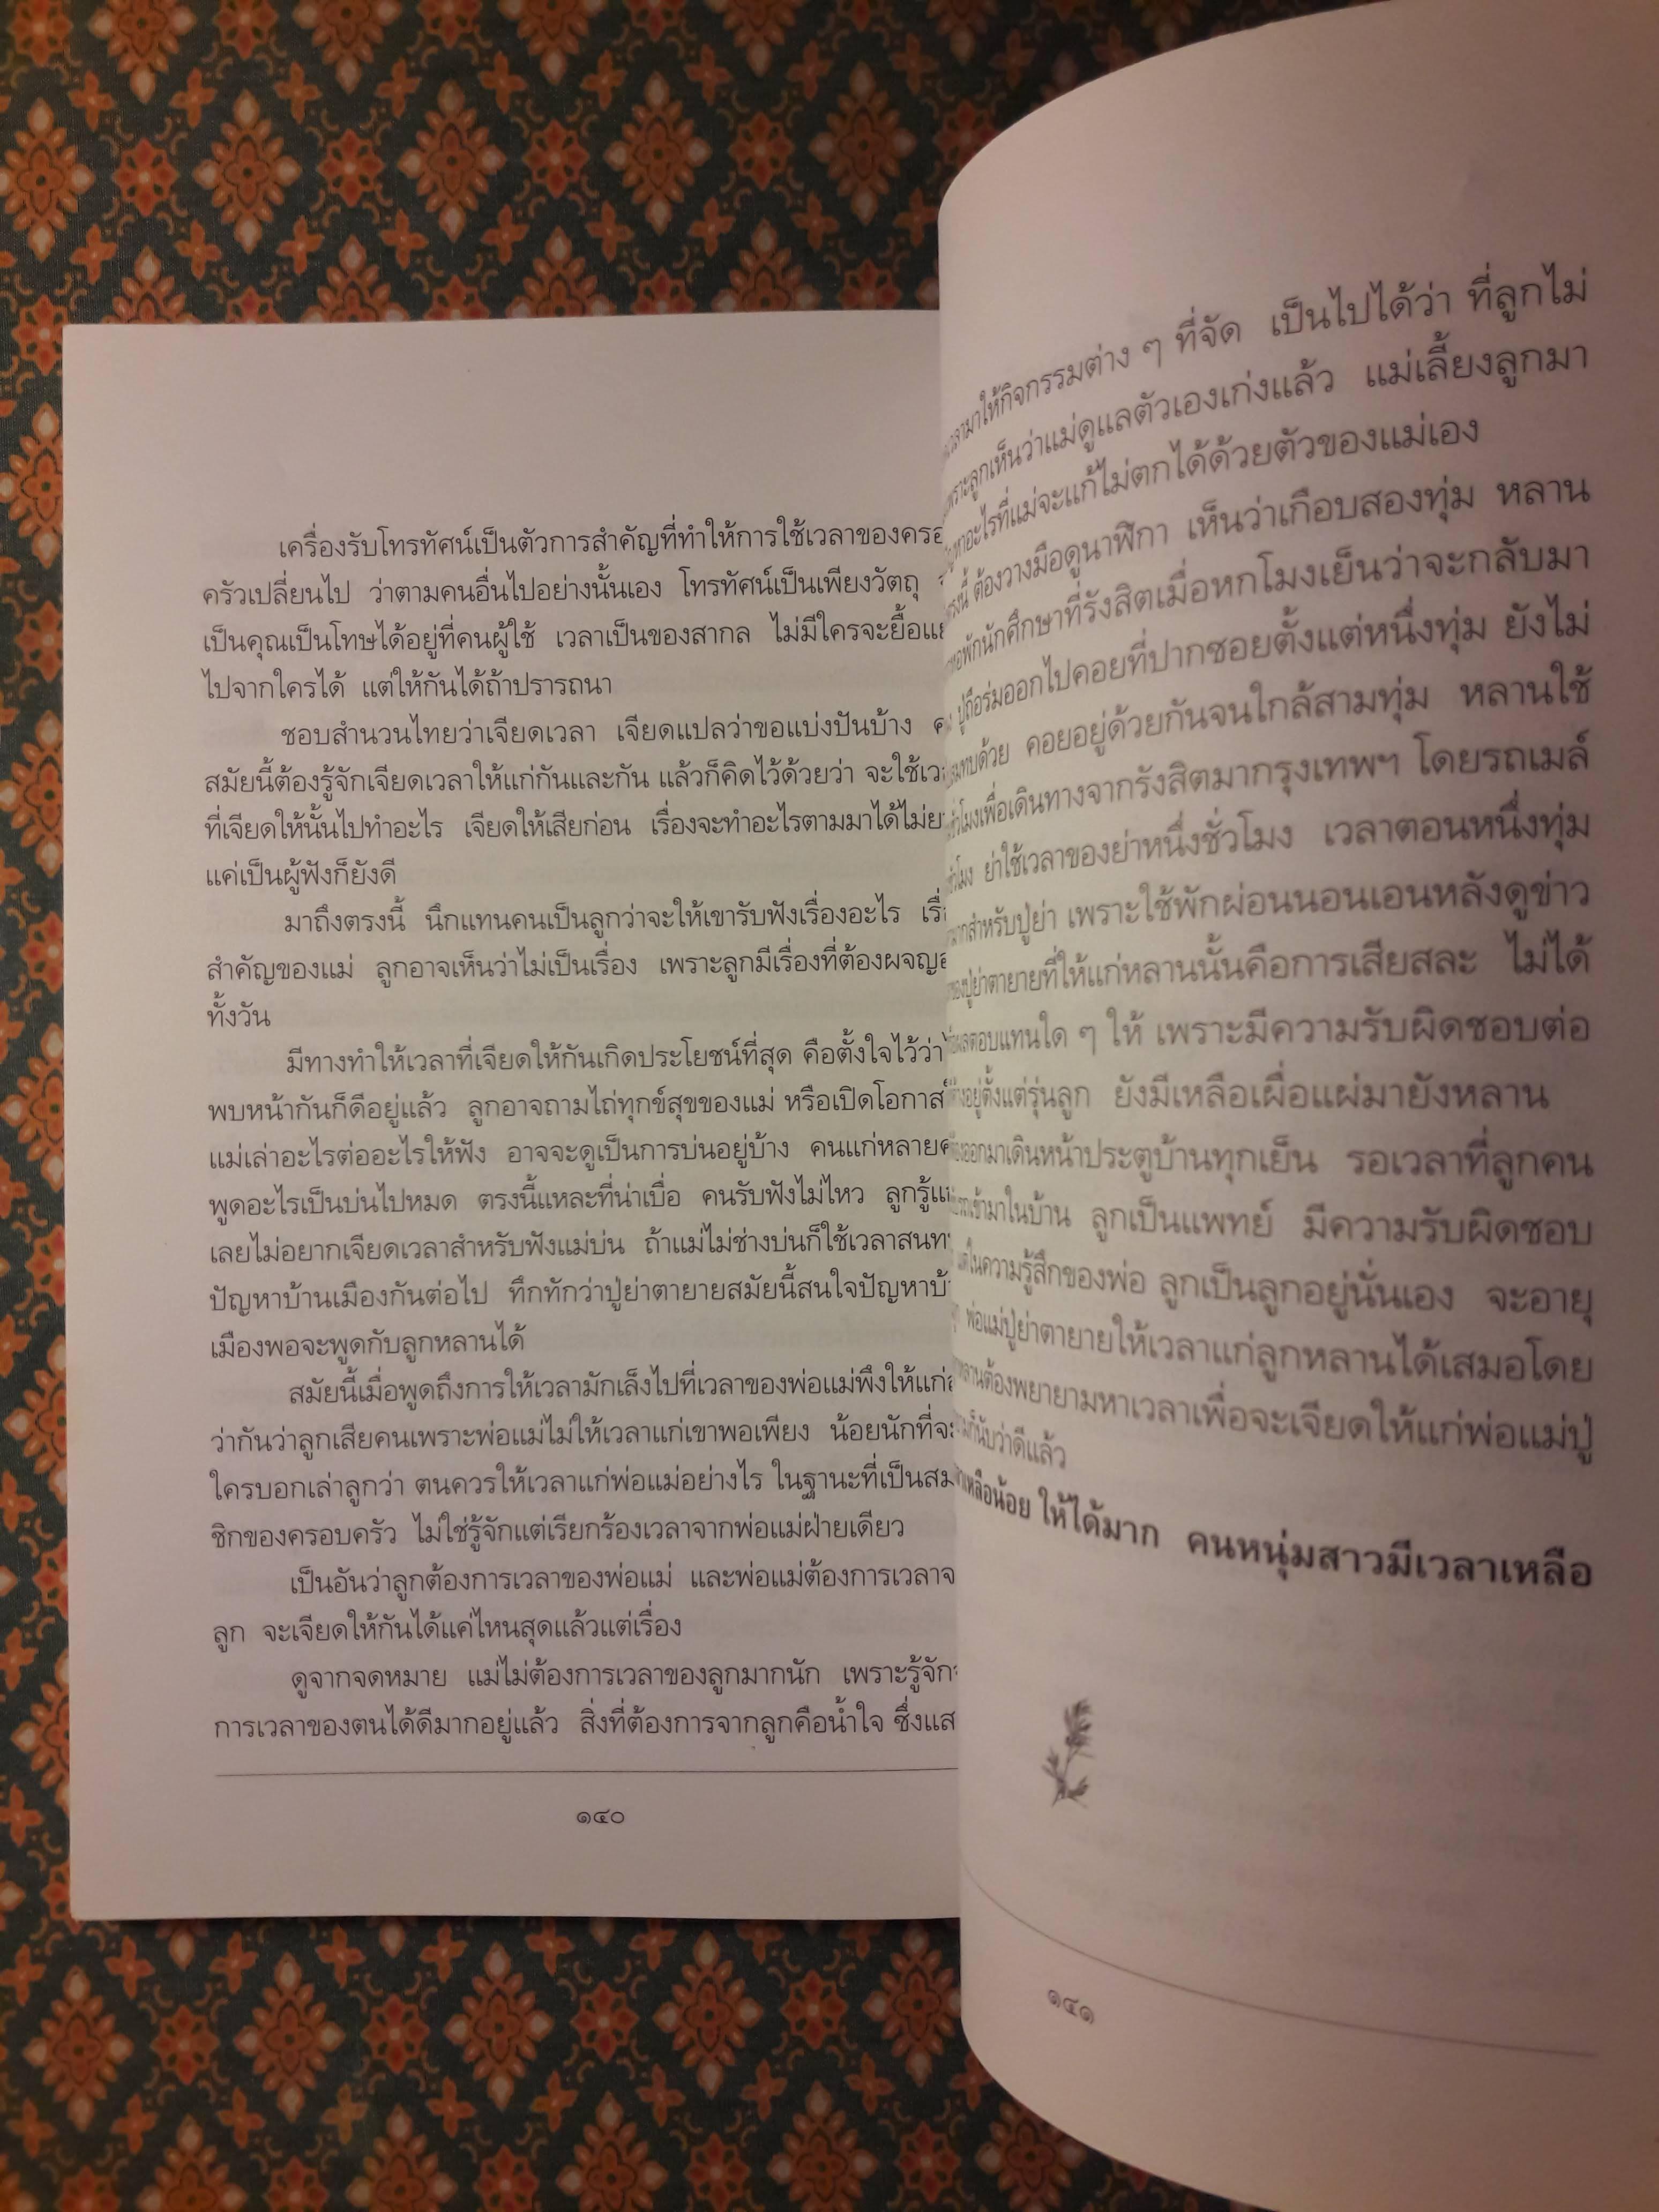 เครื่องรับโทรทัศน์เป็นตัวการสำคัญที่ทำให้การใช้เวลาของครอ
ครัวเปลี่ยนไป ว่าตามคนอื่นไปอย่างนั้นเอง โทรทัศน์เป็นเพียงวัตถุ
เป็นคุณเป็นโทษได้อยู่ที่คนผู้ใช้ เวลาเป็นของสากล ไม่มีใครจะยื้อแย
ไปจากใครได้ แต่ให้กันได้ถ้าปรารถนา
ชอบสำนวนไทยว่าเจียดเวลา เจียดแปลว่าขอแบ่งปันบ้าง
สมัยนี้ต้องรู้จักเจียดเวลาให้แก่กันและกัน แล้วก็คิดไว้ด้วยว่า จะใช้เว
ที่เจียดให้นั้นไปทำอะไร เจียดให้เสียก่อน เรื่องจะทำอะไรตามมาได้ไม่ย
แค่เป็นผู้ฟังก็ยังดี
มาถึงตรงนี้ นึกแทนคนเป็นลูกว่าจะให้เขารับฟังเรื่องอะไร เรื่
สำคัญของแม่ ลูกอาจเห็นว่าไม่เป็นเรื่อง เพราะลูกมีเรื่องที่ต้องผจญ
ทั้งวัน
มีทางทำให้เวลาที่เจียดให้กันเกิดประโยชน์ที่สุด คือตั้งใจไว้ว่า
พบหน้ากันก็ดีอยู่แล้ว ลูกอาจถามไถ่ทุกข์สุขของแม่ หรือเปิดโอกาส
แม่เล่าอะไรต่ออะไรให้ฟัง อาจจะดูเป็นการบ่นอยู่บ้าง คนแก่หลายค
พูดอะไรเป็นบ่นไปหมด ตรงนี้แหละที่น่าเบื่อ คนรับฟังไม่ไหว ลูกรู้แ
เลยไม่อยากเจียดเวลาสำหรับฟังแม่บ่น ถ้าแม่ไม่ช่างบ่นก็ใช้เวลาสนท
ปัญหาบ้านเมืองกันต่อไป ทึกทักว่าปู่ย่าตายายสมัยนี้สนใจปัญหาบ้
เมืองพอจะพูดกับลูกหลานได้
สมัยนี้เมื่อพูดถึงการให้เวลามักเล็งไปที่เวลาของพ่อแม่พึงให้แก่
ว่ากันว่าลูกเสียคนเพราะพ่อแม่ไม่ให้เวลาแก่เขาพอเพียง น้อยนักที่จะ
ใครบอกเล่าลูกว่า ตนควรให้เวลาแก่พ่อแม่อย่างไร ในฐานะที่เป็นสม
ชิกของครอบครัว ไม่ใช่รู้จักแต่เรียกร้องเวลาจากพ่อแม่ฝ่ายเดียว
เป็นอันว่าลูกต้องการเวลาของพ่อแม่ และพ่อแม่ต้องการเวลาจ
ลูก จะเจียดให้กันได้แค่ไหนสุดแล้วแต่เรื่อง
ดูจากจดหมาย แม่ไม่ต้องการเวลาของลูกมากนัก เพราะรู้จัก
การเวลาของตนได้ดีมากอยู่แล้ว สิ่งที่ต้องการจากลูกคือน้ำใจ ซึ่งแส
๑๔๐
เวลามาให้กิจกรรมต่าง ๆ ที่จัด เป็นไปได้ว่า ที่ลูกไม่
เพราะลูกเห็นว่าแม่ดูแลตัวเองเก่งแล้ว แม่เลี้ยงลูกมา
อะไรที่แม่จะแก้ไม่ตกได้ด้วยตัวของแม่เอง
ตรงนี้ ต้องวางมือดูนาฬิกา เห็นว่าเกือบสองทุ่ม หลาน
หอพักนักศึกษาที่รังสิตเมื่อหกโมงเย็นว่าจะกลับมา
ปู่ถือร่มออกไปคอยที่ปากซอยตั้งแต่หนึ่งทุ่ม ยังไม่
สมทบด้วย คอยอยู่ด้วยกันจนใกล้สามทุ่ม หลานใช้
ชั่วโมงเพื่อเดินทางจากรังสิตมากรุงเทพฯ โดยรถเมล์
ชั่วโมง ย่าใช้เวลาของย่าหนึ่งชั่วโมง เวลาตอนหนึ่งทุ่ม
มากสำหรับปู่ย่า เพราะใช้พักผ่อนนอนเอนหลังดูข่าว
ของปู่ย่าตายายที่ให้แก่หลานนั้นคือการเสียสละ ไม่ได้
ผลตอบแทนใด ๆ ให้ เพราะมีความรับผิดชอบต่อ
อยู่ตั้งแต่รุ่นลูก ยังมีเหลือเผื่อแผ่มายังหลาน
ออกมาเดินหน้าประตูบ้านทุกเย็น รอเวลาที่ลูกคน
รถเข้ามาในบ้าน ลูกเป็นแพทย์ มีความรับผิดชอบ
แต่ในความรู้สึกของพ่อ ลูกเป็นลูกอยู่นั่นเอง จะอายุ
พ่อแม่ปู่ย่าตายายให้เวลาแก่ลูกหลานได้เสมอโดย
หลานต้องพยายามหาเวลาเพื่อจะเจียดให้แก่พ่อแม่ปู่
ก็นับว่าดีแล้ว
เหลือน้อย ให้ได้มาก คนหนุ่มสาวมีเวลาเหลือ
๑๔๑